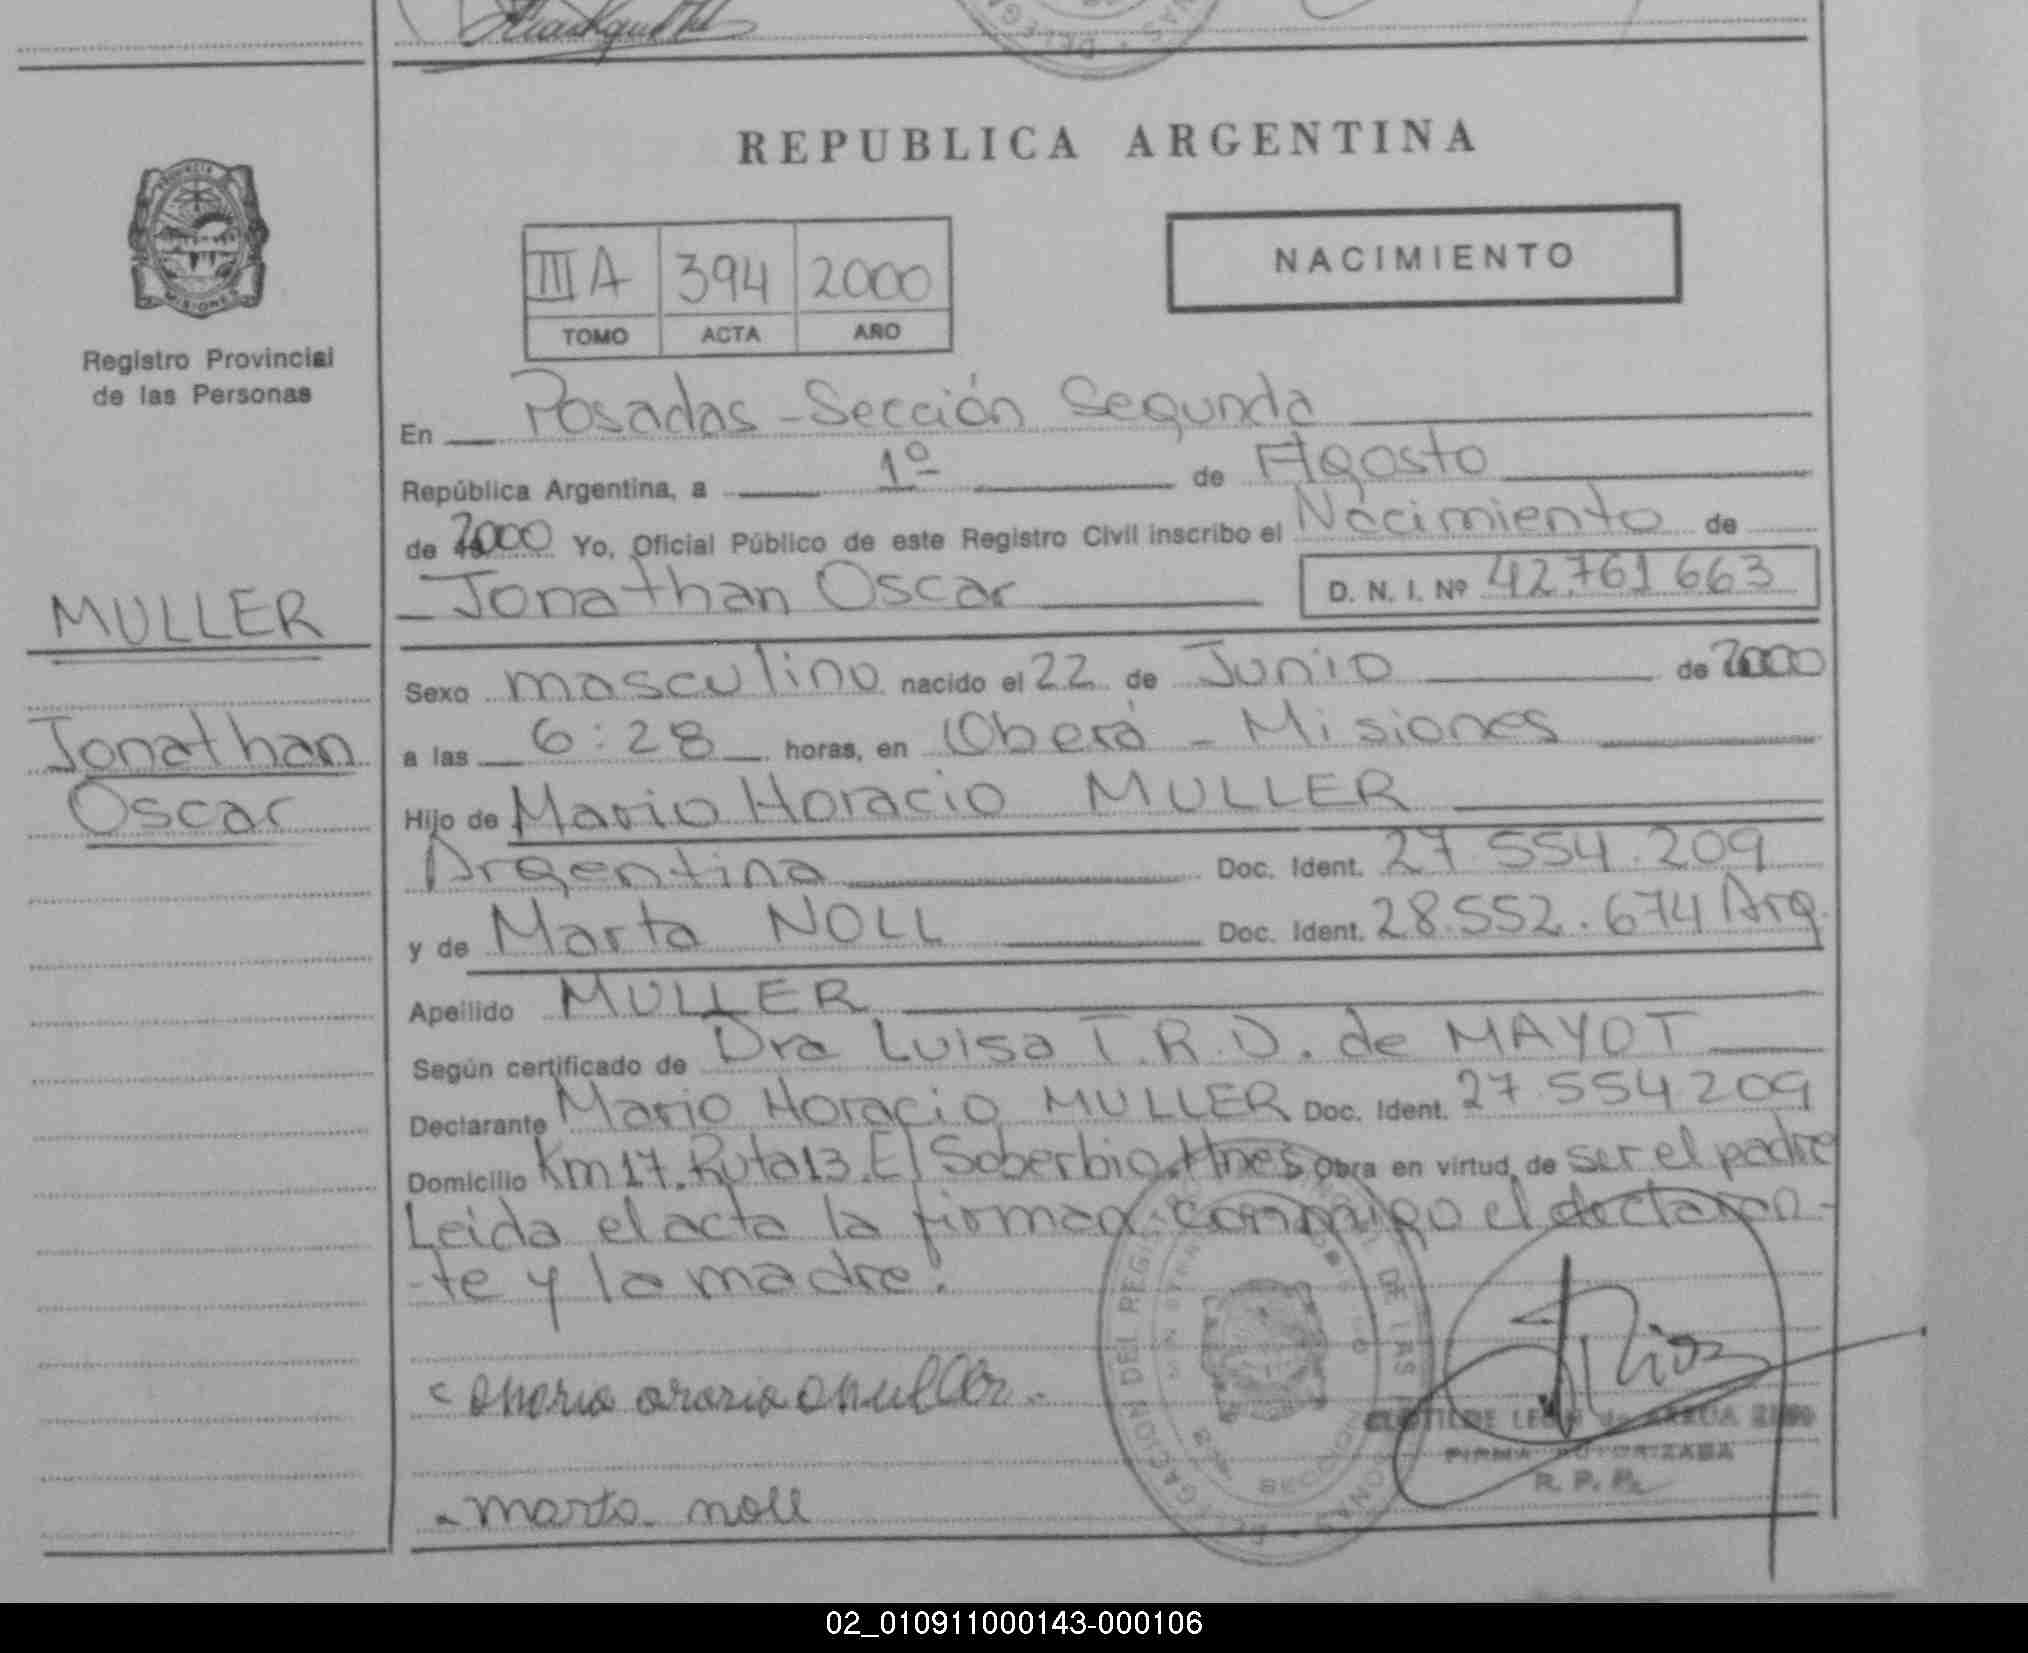 REPUBLICA ARGENTINA
PROVINCIA
MISIONES
Registro Provincial
de las Personas
III A 394 2000
TOMO ACTA AÑO
NACIMIENTO
En Posadas - Sección Segunda
República Argentina, a 1º de Agosto
de 2000 Yo, Oficial Público de este Registro Civil inscribo el Nacimiento de
Jonathan Oscar D. N. I. Nº 42.761.663
MULLER
Jonathan
Oscar
Sexo masculino nacido el 22 de Junio de 2000
a las 6:28 horas, en Oberá - Misiones
Hijo de Mario Horacio MULLER
Argentina Doc. Ident. 27.554.209
y de Marta NOLL Doc. Ident. 28.552.674 Arg.
Apellido MULLER
Según certificado de Dra Luisa T.R.D. de MAYOT
Declarante Mario Horacio MULLER Doc. Ident. 27.554.209
Domicilio Km 17. Ruta 13. El Soberbio. Mnes Obra en virtud de ser el padre
Leida el acta la firman conmigo el declaran-
te y la madre.
marta noll
DELEGACION DEL REGISTRO PROVINCIAL DE LAS PERSONAS
FIRMA AUTORIZADA
R. P. P.
02_010911000143-000106